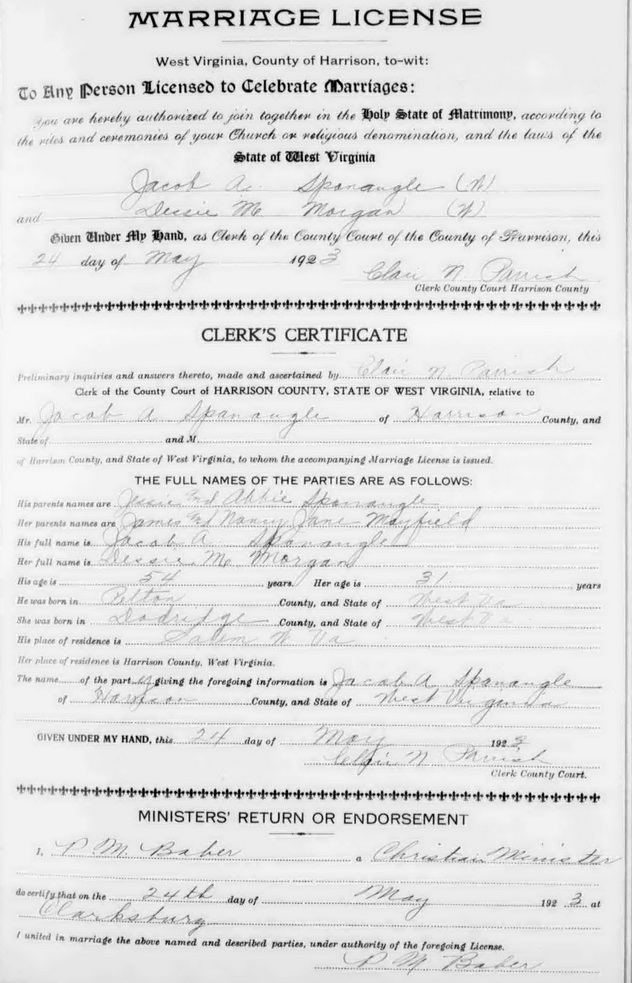 MARRIAGE LICENSE
West Virginia, County of Harrison, to-wit:
To Any Person Licensed to Celebrate Marriages:
you are hereby authorized to join together in the Holy State of Matrimony, according to
the rites and ceremonies of your Church or religious denomination, and the laws of the
State of West Virginia
Jacob A. Sponaugle (W)
and Dessie M Morgan (W)
Given Under My Hand, as Clerk of the County Court of the County of Harrison, this
24 day of May 1923
Clair N. Parrish
Clerk County Court Harrison County
CLERK'S CERTIFICATE
Preliminary inquiries and answers thereto, made and ascertained by Clair N. Parrish
Clerk of the County Court of HARRISON COUNTY, STATE OF WEST VIRGINIA, relative to
Mr. Jacob A Sponaugle of Harrison County, and
State of and M
of Harrison County, and State of West Virginia, to whom the accompanying Marriage License is issued.
THE FULL NAMES OF THE PARTIES ARE AS FOLLOWS:
His parents names are Jessie and Abbie Sponaugle
Her parents names are James and Nancy Jane Mayfield
His full name is Jacob A. Sponaugle
Her full name is Dessie M Morgan
His age is 54 years. Her age is 31 years
He was born in County, and State of West Va
She was born in Dodridge County, and State of West Va
His place of residence is Salem W. Va
Her place of residence is Harrison County, West Virginia.
The name of the party giving the foregoing information is Jacob A Sponaugle
of Harrison County, and State of West Virginia
GIVEN UNDER MY HAND, this 24 day of May 1923
Clair N Parrish
Clerk County Court.
MINISTERS' RETURN OR ENDORSEMENT
I, P M. Baber a Christian Minister
do certify that on the 24th day of May 1923 at
Clarksburg
I united in marriage the above named and described parties, under authority of the foregoing License.
P M Baber